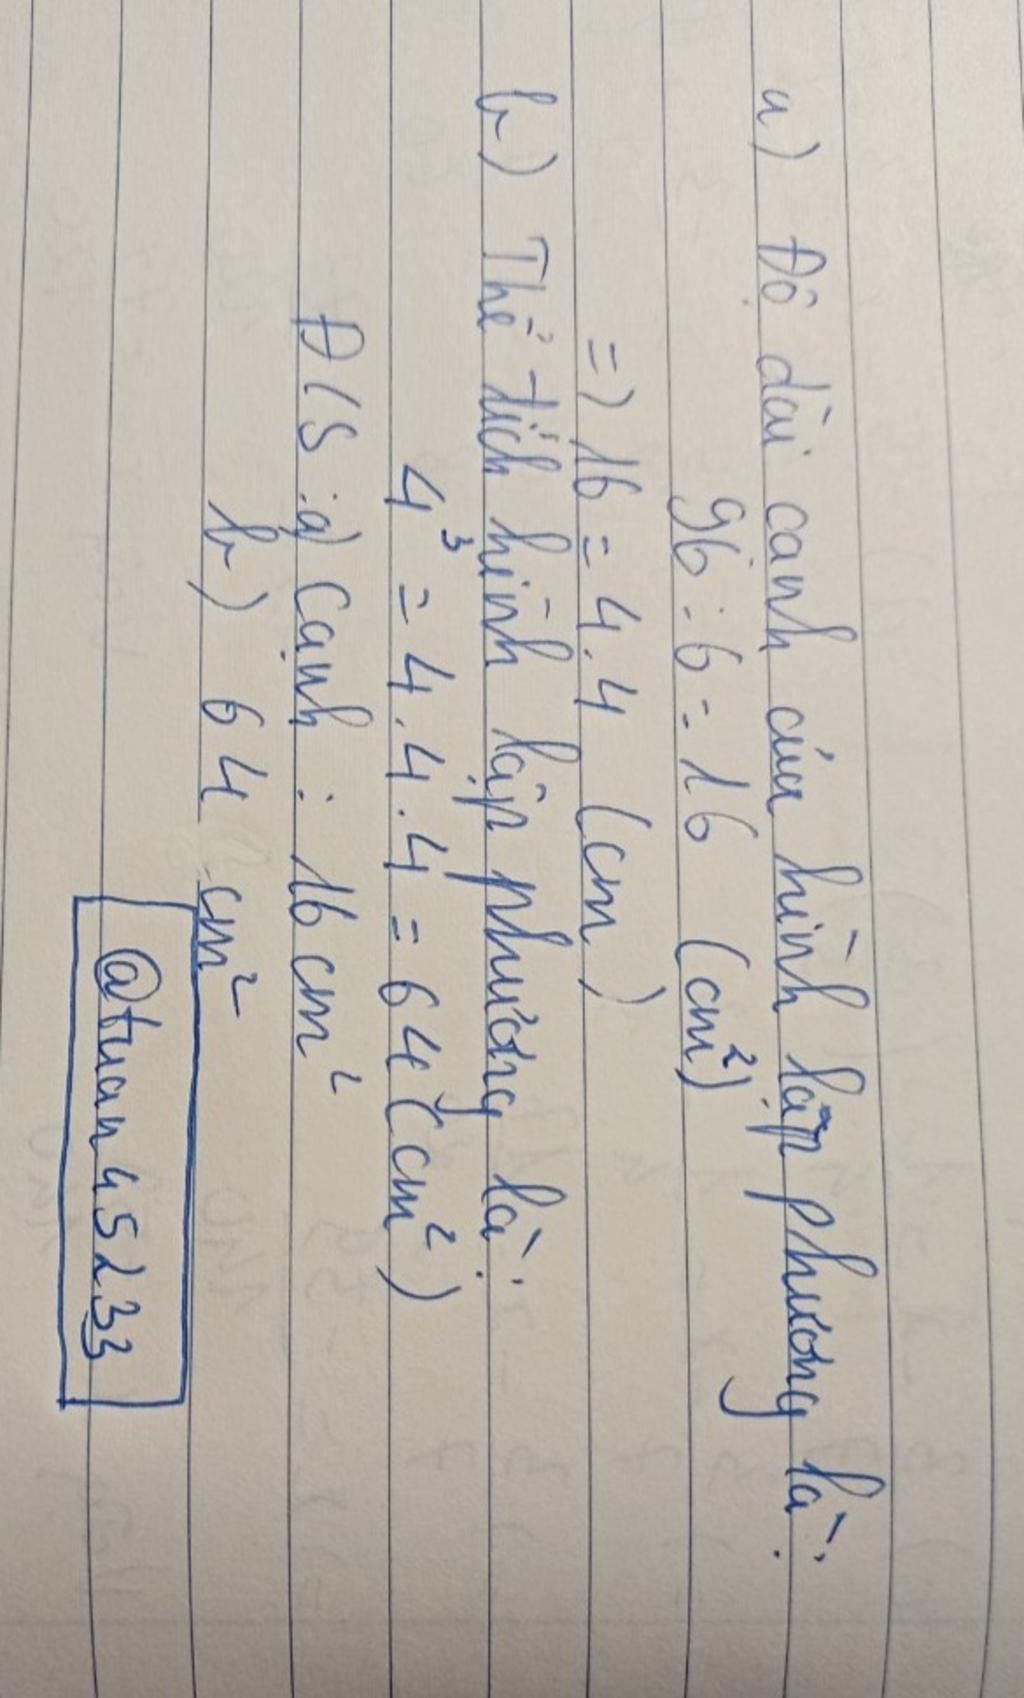 a) Độ dài cạnh của hình lập phương là:
96 : 6 = 16 (cm²)
=) 16 = 4.4 (cm)
b) Thể tích hình lập phương là:
4³ = 4.4.4 = 64 (cm²)
Đ/S : a) Cạnh : 16 cm²
b) 64 cm²
@tuan45233